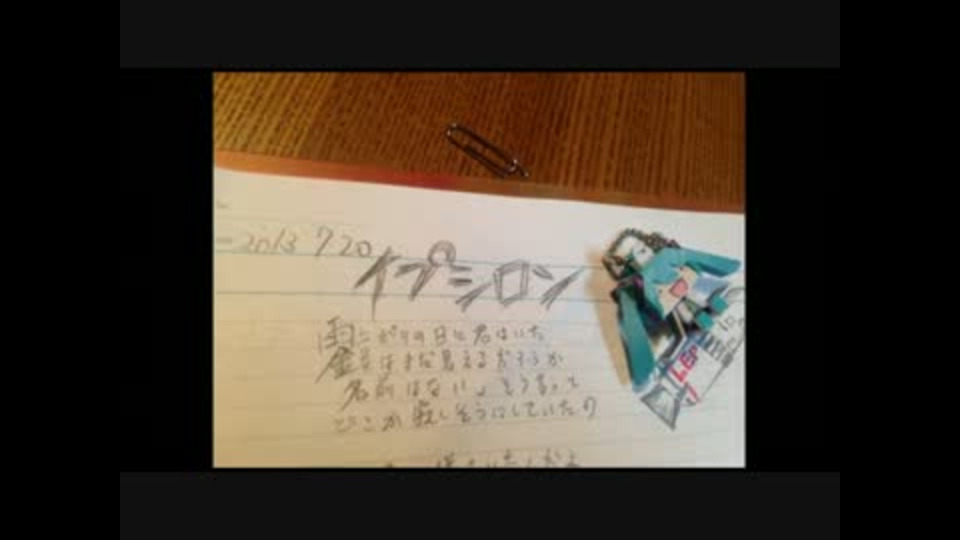 2013 7 20
イプシロン
雨上がりの日に君はいた
はまだ見えるだろうか
名前はない」そう言って
どこか寂しそうにしていたの